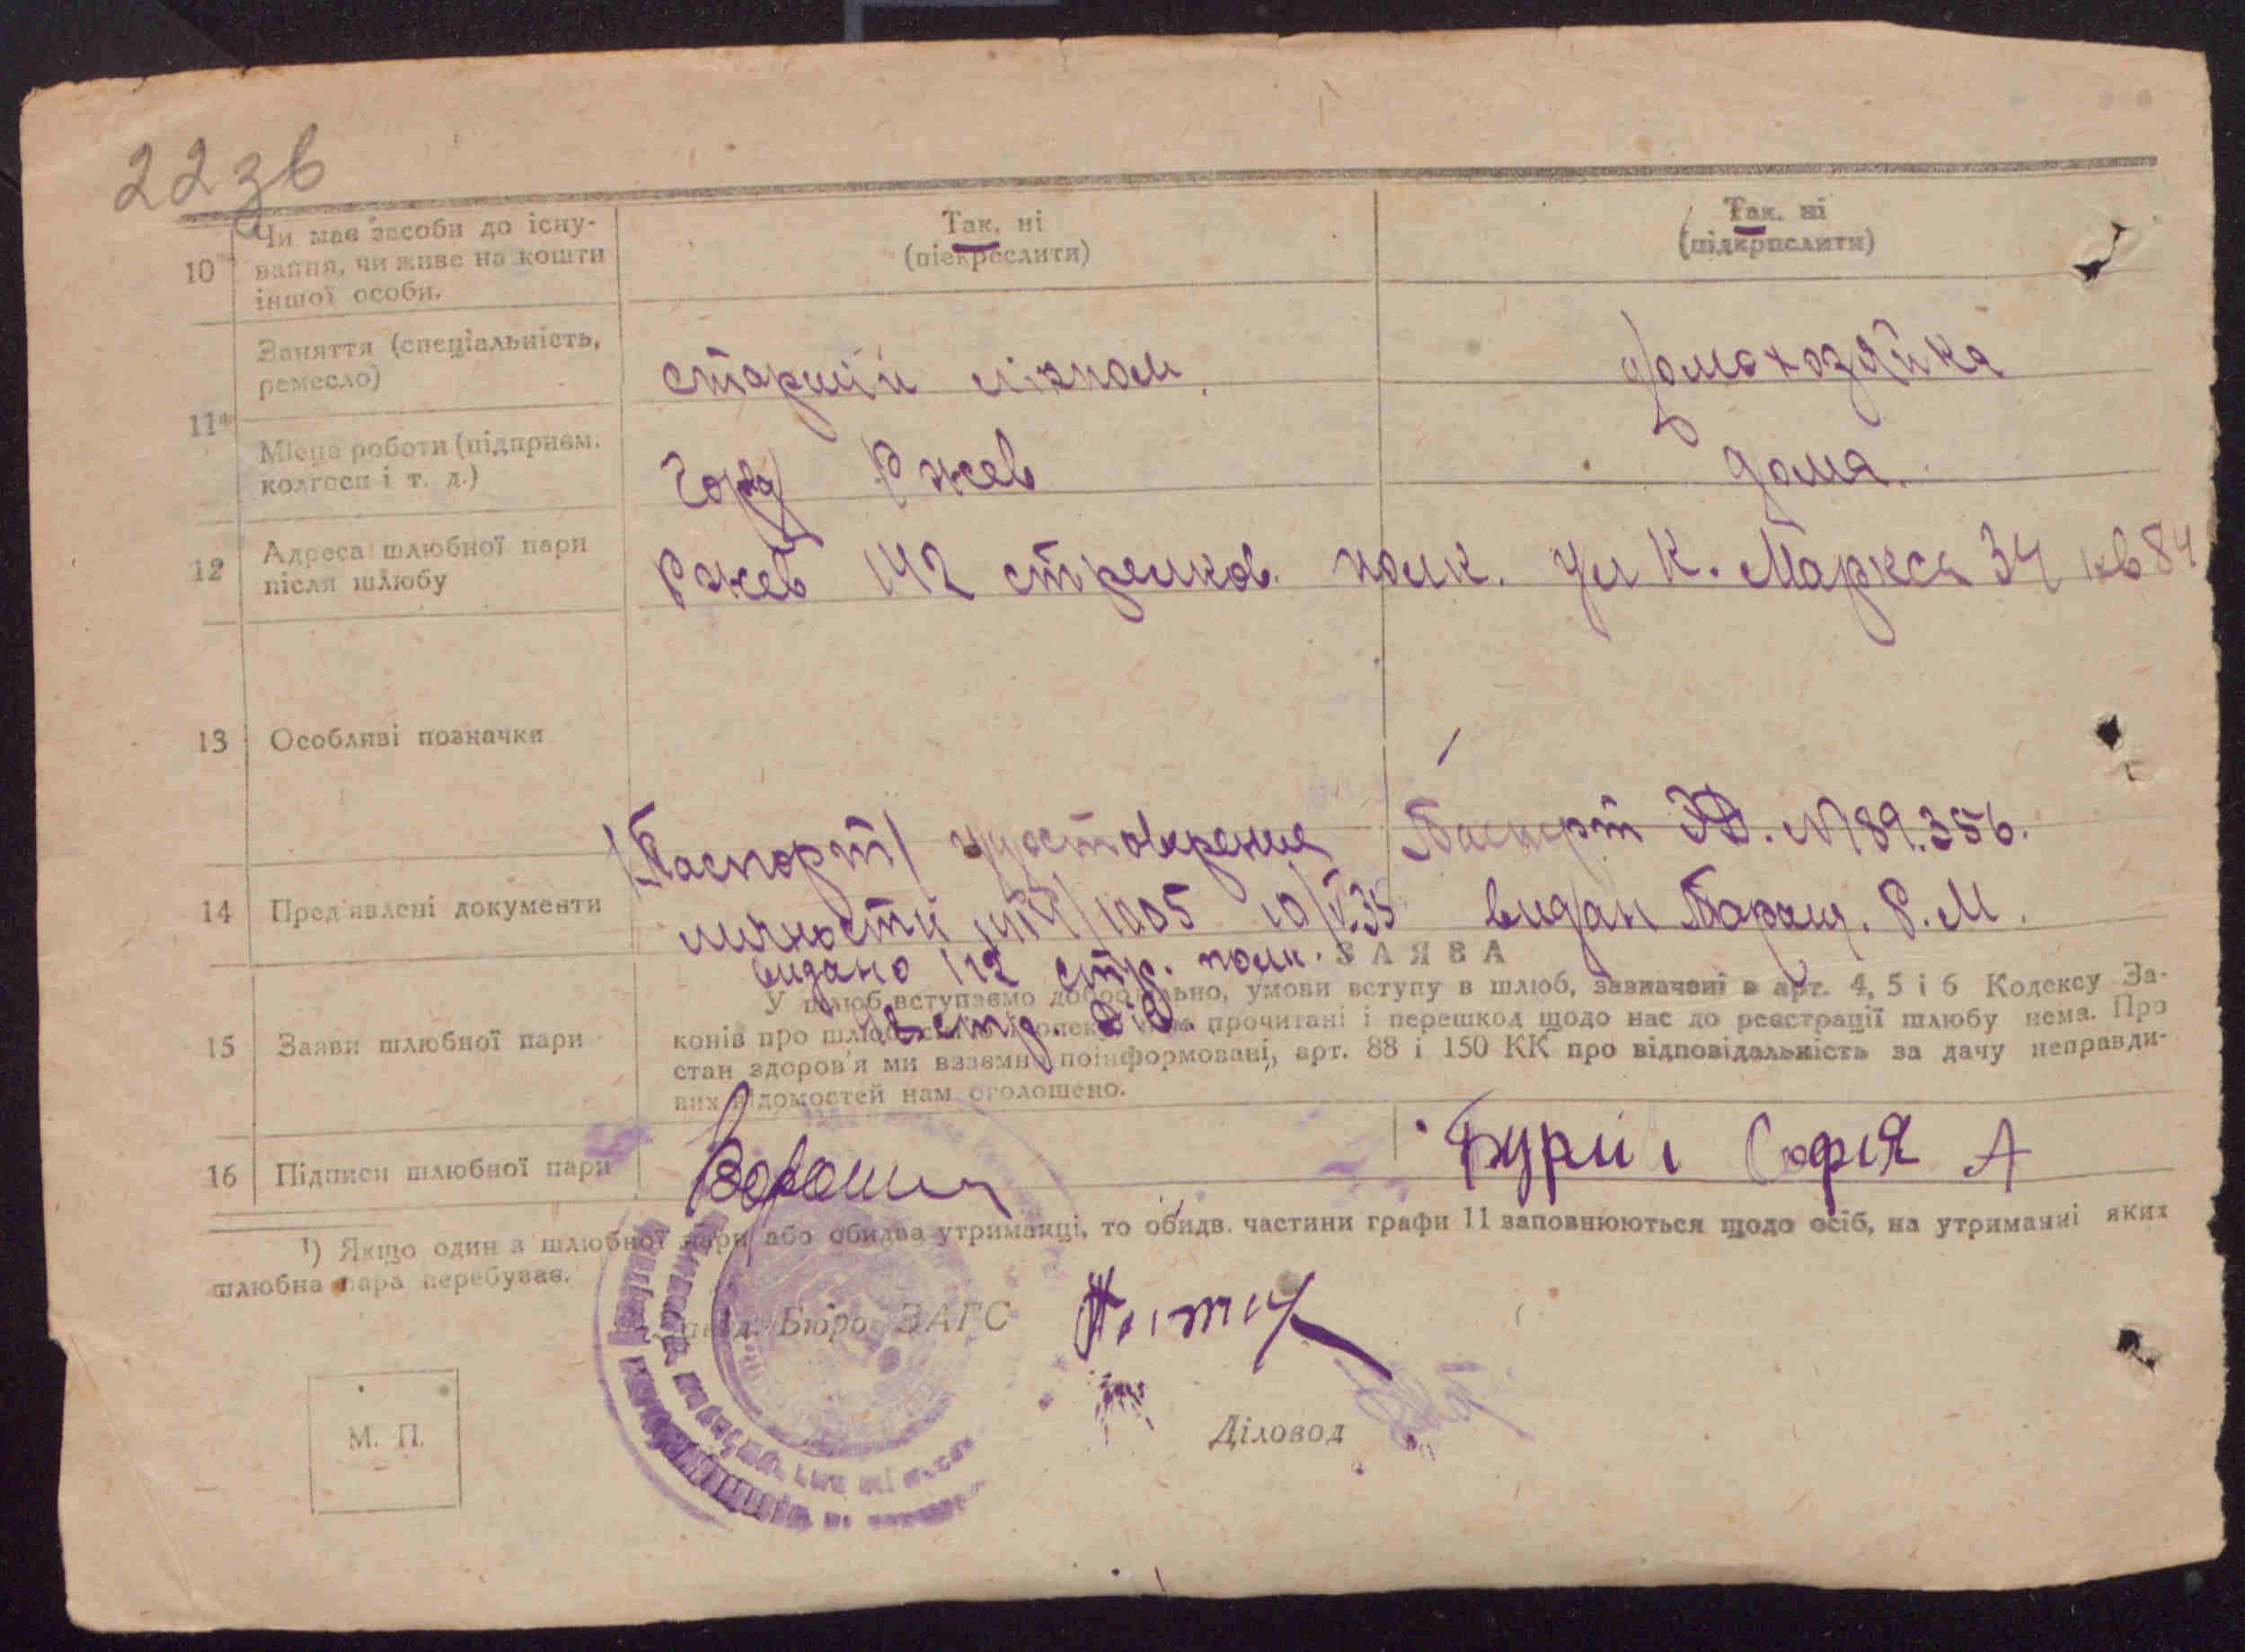 22зв
10 Чи має засоби до існу-
вання, чи живе на кошти
іншої особи.
Так, ні
(піекреслити)
Так, ні
(підкрпслити)
11*
Заняття (спеціальність,
ремесло)
старший лікпом.
домохозяйка
Місце роботи (підприєм.
колгосп і т. д.)
Город Ржев
дома.
12 Адреса шлюбної пари
після шлюбу
Ржев 142 стрелков. полк. ул К. Маркса 34 кв 84
13 Особливі позначки
14 Пред'явлені документи
/Паспорт/ удостоверение
личности 1005 10/V.35
видано 142 стр. полк.
стр. див.
Паспорт ЗД. № 189.356.
видан Р.М.
15 Заяви шлюбної пари
ЗАЯВА
У шлюб вступаємо добровільно, умови вступу в шлюб, зазначені в арт. 4, 5 і 6 Кодексу За-
конів про шлюб прочитані і перешкод щодо нас до реєстрації шлюбу нема. Про
стан здоров'я ми взаємно поінформовані, арт. 88 і 150 КК про відповідальність за дачу неправди-
вих відомостей нам оголошено.
16 Підписи шлюбної пари
Бурій Софія А
¹) Якщо один з шлюбної пари або обидва утриманці, то обидв. частини графи 11 заповнюються щодо осіб, на утриманні яких
шлюбна пара перебуває.
Завід. Бюро ЗАГС
Діловод
М. П.